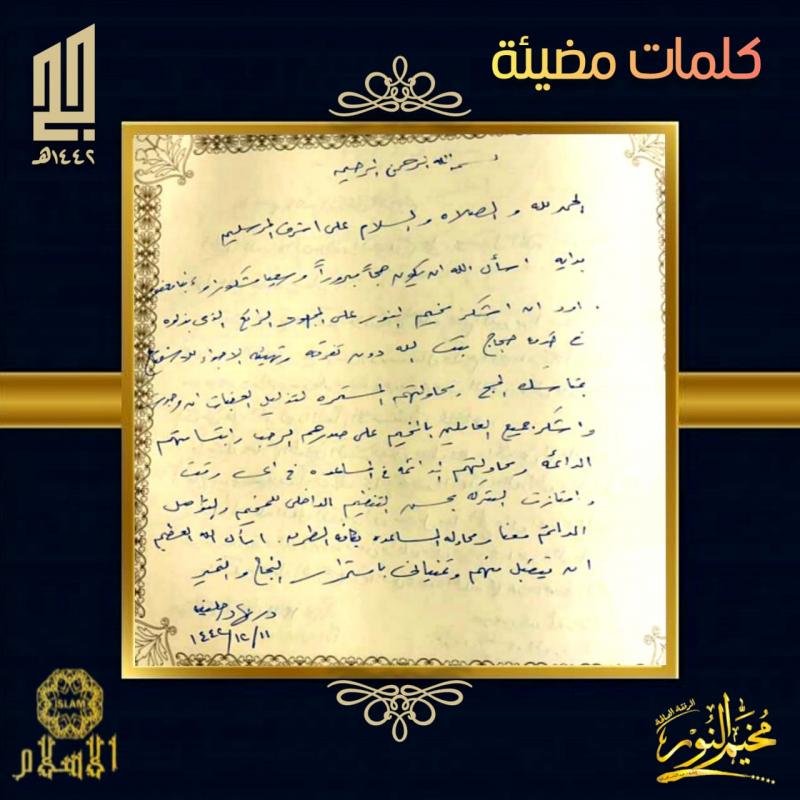 كلمات مضيئة
١٤٤٢هـ
بسم الله الرحمن الرحيم
الحمد لله و الصلاه و السلام على اشرف المرسلين
بدايه اسأل الله ان يكون حجاً مبروراً و سعيا مشكورا و ذنبا مغفور
اود ان اشكر مخيم النور على المجهود الرائع الذى بذلوه
في خدمه حجاج بيت الله دون تفرقه و تهيئه الاجواء للاستمتاع
بمناسك الحج و محاولتهم المستمره لتذليل العقبات ان وجدت
و اشكر جميع العاملين بالمخيم على صدرهم الرحب و ابتسامتهم
الدائمة و محاولتهم الدائمه في المساعده في اى وقت
و امتازت الشركه بحسن التنظيم الداخلى للمخيم و التواصل
الدائم معنا و محاوله المساعده بكافه الطرق . اسأل الله العظيم
ان يتقبل منهم و تمنياتى باستمرار النجاح و التميز
١٤٤٢/١٢/١١
ISLAM
الاسلام
مخيم النور